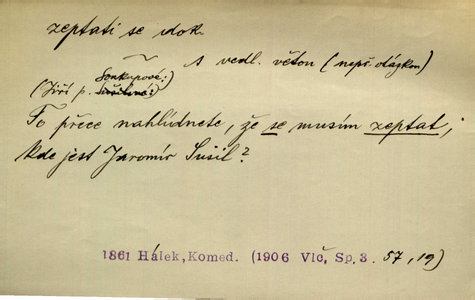 zeptati se dok.
s vedl. větou (nepř. otázkou)
(Jiří p. Soukupové:)
To přece nahlídnete, že se musím zeptat,
kde jest Jaromír Sušil?
1861 Hálek, Komed. (1906 Vlč, Sp. 3. 57, 19)